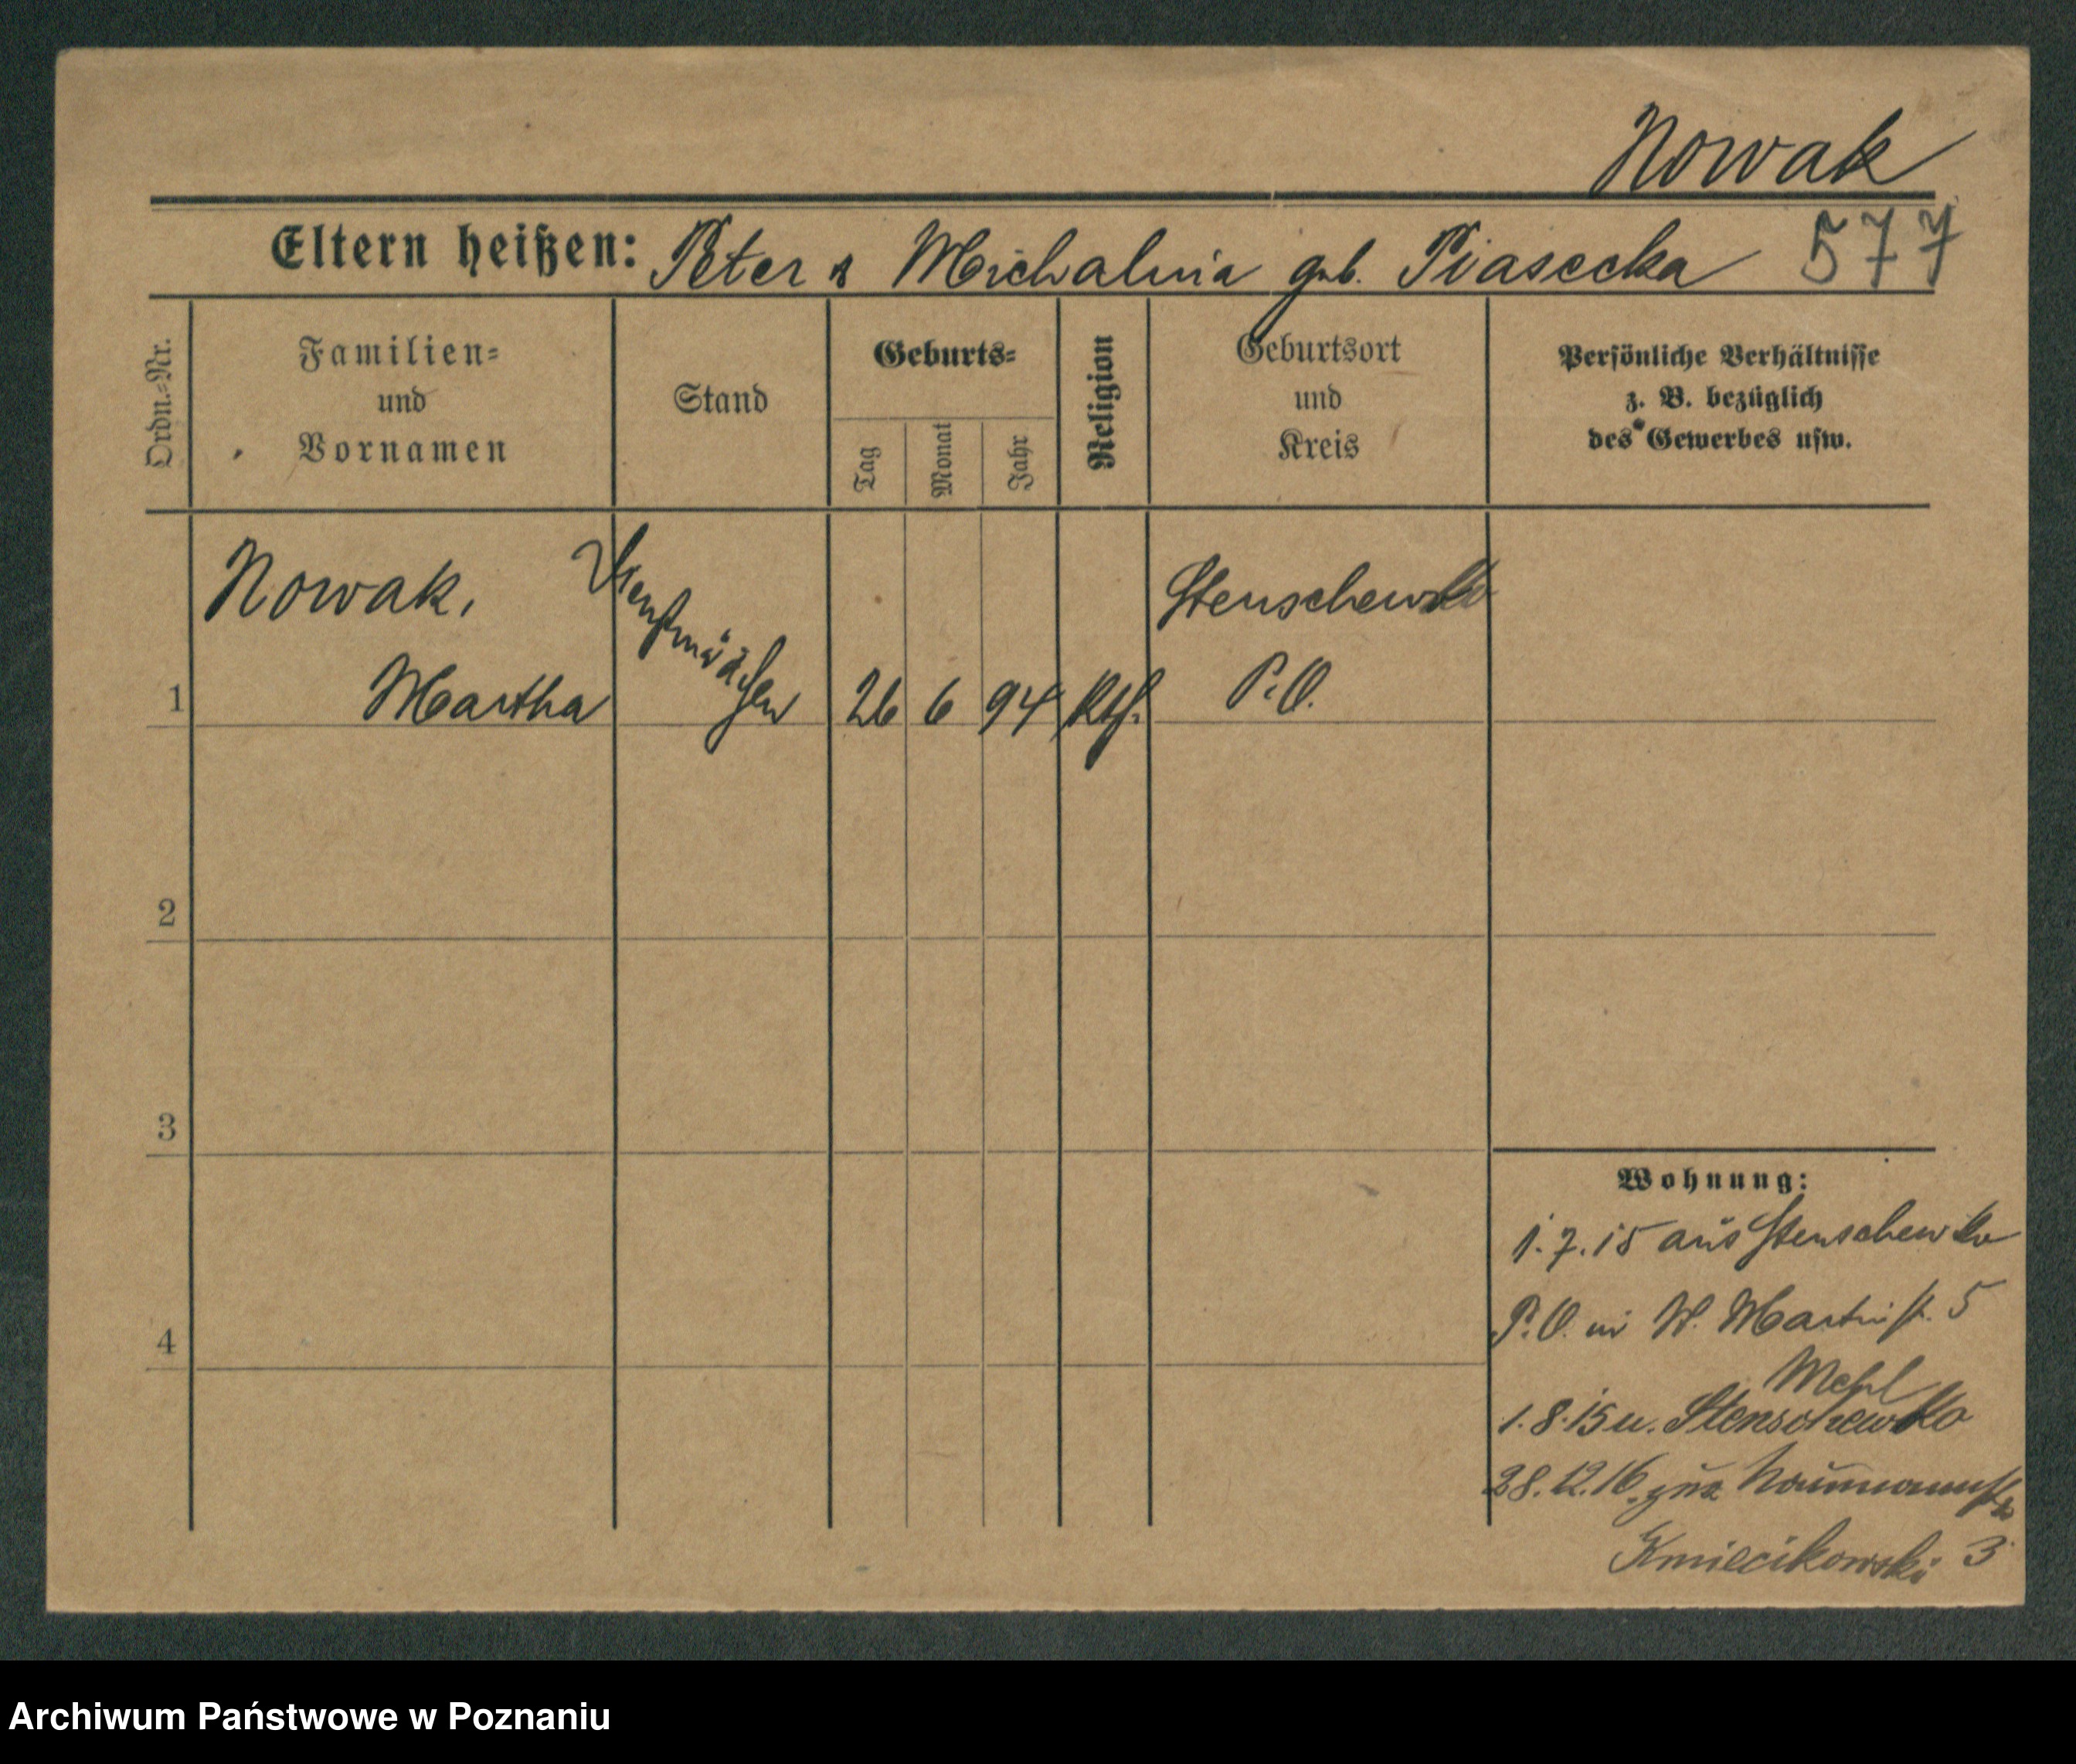 Nowak
Eltern heißen: Peter & Michalina geb. Piasecka 577
Ordn.-Nr.
Familien-
und
Vornamen
Stand
Geburts-
Tag
Monat
Jahr
Religion
Geburtsort
und
Kreis
Persönliche Verhältnisse
z. B. bezüglich
des Gewerbes usw.
Nowak,
Martha
Dienstmädchen
1
26 6 94 kth.
Stenschewko
P.O.
2
3
4
Wohnung:
1.7.15 aus Stenschewko
P.O. in W. Martinst. 5
1.8.15 n. Stenschewko
28.12.16 zur Naumannstr
Kmiecikowski 3
Archiwum Państwowe w Poznaniu